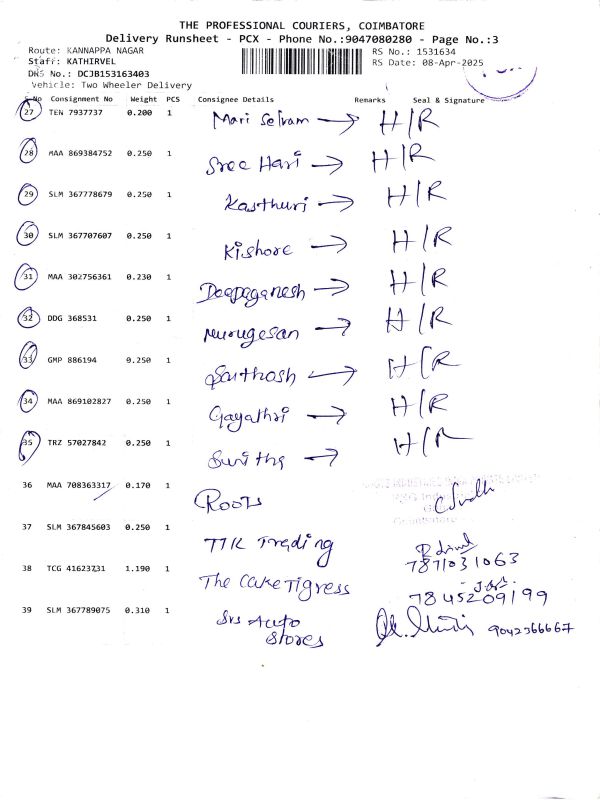 THE PROFESSIONAL COURIERS, COIMBATORE
Delivery Runsheet - PCX - Phone No.:9047080280 - Page No.:3
Route: KANNAPPA NAGAR RS No.: 1531634
Staff: KATHIRVEL RS Date: 08-Apr-2025
DRS No.: DCJB153163403
Vehicle: Two Wheeler Delivery
S.No Consignment No Weight PCS Consignee Details Remarks Seal & Signature
27 TEN 7937737 0.200 1 Mari Selvam → H/R
28 MAA 869384752 0.250 1 Sree Hari → H/R
29 SLM 367778679 0.250 1 Kasthuri → H/R
30 SLM 367707607 0.250 1 Kishore → H/R
31 MAA 302756361 0.230 1 Deepaganesh → H/R
32 DDG 368531 0.250 1 Murugesan → H/R
33 GMP 886194 9.250 1 Santhosh → H/R
34 MAA 869102827 0.250 1 Gayathri → H/R
35 TRZ 57027842 0.250 1 Sunitha → H/R
36 MAA 708363317 0.170 1 Roots
37 SLM 367845603 0.250 1 TTK Trading
7871031063
38 TCG 41623731 1.190 1 The CakeTigress
7845209199
39 SLM 367789075 0.310 1 Srs Auto
Stores 9042366667